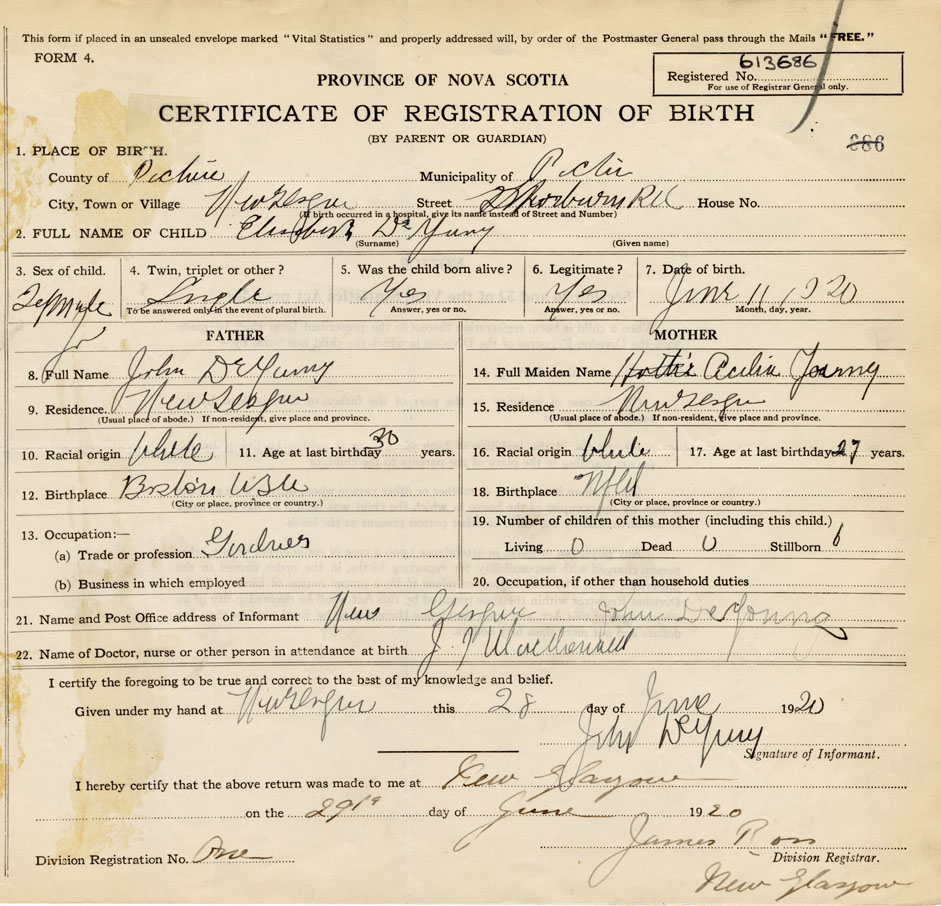 This form if placed in an unsealed envelope marked "Vital Statistics" and properly addressed will, by order of the Postmaster General pass through the Mails "FREE."
FORM 4.
613686
Registered No.
For use of Registrar General only.
PROVINCE OF NOVA SCOTIA
CERTIFICATE OF REGISTRATION OF BIRTH
(BY PARENT OR GUARDIAN)
686
1. PLACE OF BIRTH.
County of Municipality of
City, Town or Village Street Thorburn Rd House No.
(If birth occurred in a hospital, give its name instead of Street and Number)
2. FULL NAME OF CHILD De Yung
(Surname) (Given name)
3. Sex of child. 4. Twin, triplet or other? 5. Was the child born alive? 6. Legitimate? 7. Date of birth.
Single Yes Yes June 11, 1920
To be answered only in the event of plural birth. Answer, yes or no. Answer, yes or no. Month, day, year.
FATHER MOTHER
8. Full Name John DeYung 14. Full Maiden Name Hattie
9. Residence. 15. Residence
(Usual place of abode.) If non-resident, give place and province. (Usual place of abode.) If non-resident, give place and province.
10. Racial origin white 11. Age at last birthday 30 years. 16. Racial origin white 17. Age at last birthday 27 years.
12. Birthplace Boston USA 18. Birthplace Nfld
(City or place, province or country.) (City or place, province or country.)
19. Number of children of this mother (including this child.)
13. Occupation:—
(a) Trade or profession Living Dead Stillborn
(b) Business in which employed 20. Occupation, if other than household duties
21. Name and Post Office address of Informant New John DeYoung
22. Name of Doctor, nurse or other person in attendance at birth J. MacDonald
I certify the foregoing to be true and correct to the best of my knowledge and belief.
Given under my hand at this 28 day of June 1920
John DeYung
Signature of Informant.
I hereby certify that the above return was made to me at New Glasgow
on the 29th day of June 1920
James Ross
Division Registration No. One Division Registrar.
New Glasgow